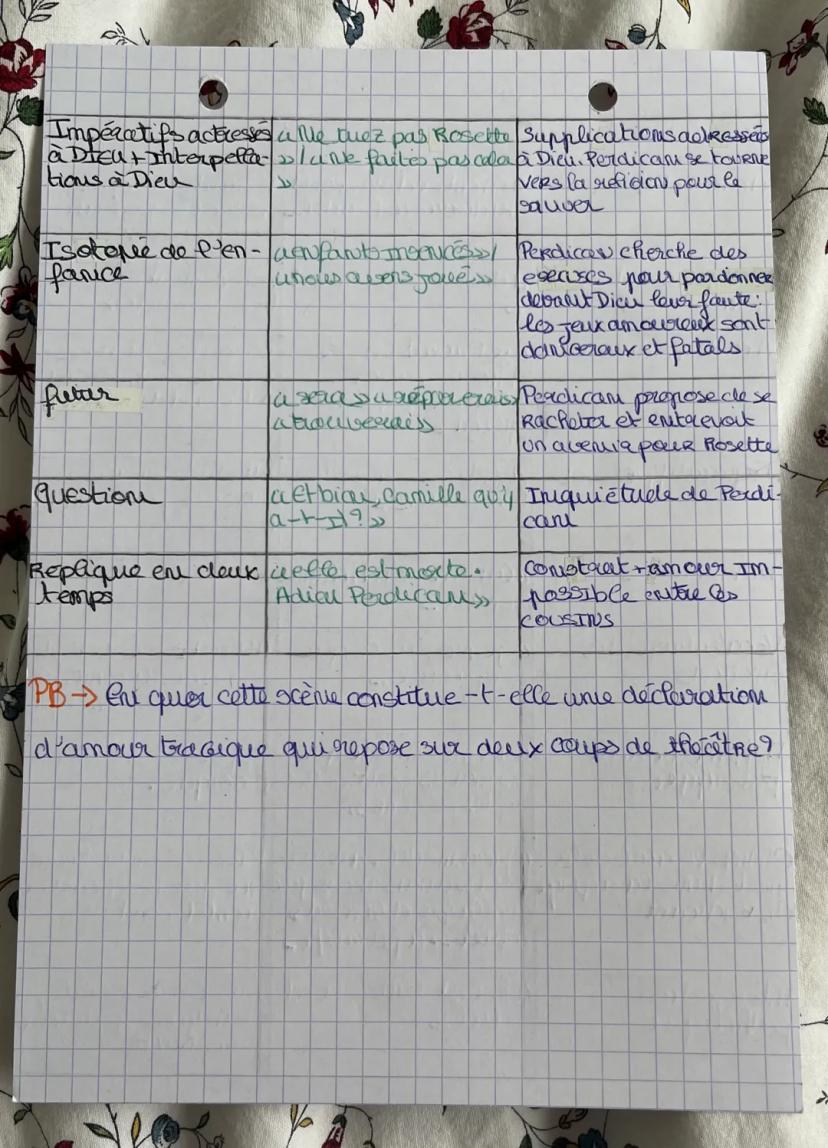 Impératifs adressés
à Dieu + Interpella-
tions à Dieu
« Ne tuez pas Rosette
» / « Ne faites pas cela
»
Supplications adressées
à Dieu. Perdican se tourne
vers la religion pour le
sauver
Isotopie de l'en-
fance
« enfants insensés » /
« nous avons joué »
Perdican cherche des
excuses pour pardonner
devant Dieu leur faute :
les jeux amoureux sont
dangereux et fatals
futur
« sera » « réparerai »
« trouverai »
Perdican propose de se
Racheter et entrevoit
un avenir pour Rosette
Question
« et bien, Camille qu'y
a-t-il ? »
Inquiétude de Perdi-
can
Réplique en deux
temps
« elle est morte.
Adieu Perdican »
Constat + amour Im-
possible entre les
cousins
PB → En quoi cette scène constitue-t-elle une déclaration
d'amour tragique qui repose sur deux coups de théâtre ?